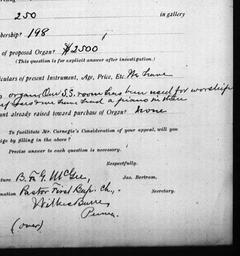 250 in gallery
bership? 198
of proposed Organ? $2500
(This question is for explicit answer after investigation.)
rticulars of present Instrument, Age, Price, Etc. We have
organ Our S.S. room has been used for worship
and we have had a piano in there
unt already raised toward purchase of Organ? None
To facilitate Mr. Carnegie's Consideration of your appeal, will you
ige by filling in the above?
Precise answer to each question is necessary.
Respectfully,
B. F. G. McGee, Jas. Bertram,
nation Pastor First Bap. Ch., Secretary.
Wilkes Barre,
Penna.
(over)